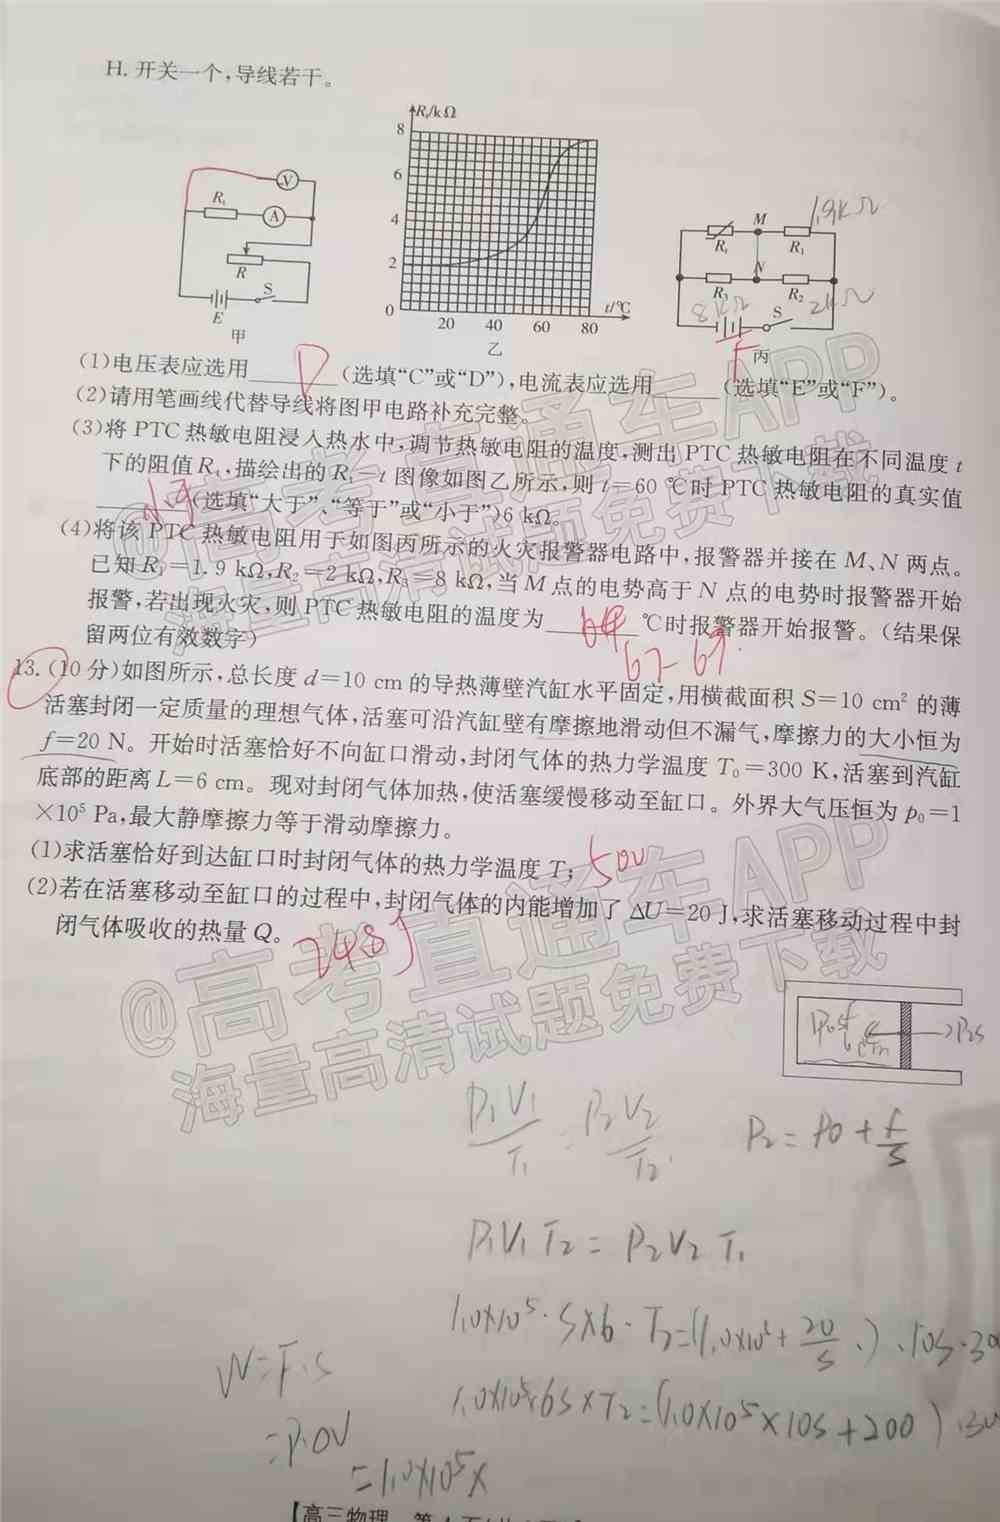 H. 开关一个,导线若干。
Rt/kΩ
8
6
4
2
0
20 40 60 80 t/℃
乙
V
Rt A
R
E S
甲
M 1.9kΩ
Rt R1
N
R3 R2
8kΩ 2kΩ
S
丙
(1)电压表应选用 D (选填“C”或“D”),电流表应选用 F (选填“E”或“F”)。
(2)请用笔画线代替导线将图甲电路补充完整。
(3)将 PTC 热敏电阻浸入热水中,调节热敏电阻的温度,测出 PTC 热敏电阻在不同温度 t
下的阻值 Rt,描绘出的 Rt-t 图像如图乙所示,则 t=60 ℃时 PTC 热敏电阻的真实值
小于 (选填“大于”、“等于”或“小于”)6 kΩ。
(4)将该 PTC 热敏电阻用于如图丙所示的火灾报警器电路中,报警器并接在 M、N 两点。
已知 R1=1.9 kΩ,R2=2 kΩ,R3=8 kΩ,当 M 点的电势高于 N 点的电势时报警器开始
报警,若出现火灾,则 PTC 热敏电阻的温度为 ℃时报警器开始报警。(结果保
留两位有效数字)
67-69
13.(10 分)如图所示,总长度 d=10 cm 的导热薄壁汽缸水平固定,用横截面积 S=10 cm² 的薄
活塞封闭一定质量的理想气体,活塞可沿汽缸壁有摩擦地滑动但不漏气,摩擦力的大小恒为
f=20 N。开始时活塞恰好不向缸口滑动,封闭气体的热力学温度 T0=300 K,活塞到汽缸
底部的距离 L=6 cm。现对封闭气体加热,使活塞缓慢移动至缸口。外界大气压恒为 p0=1
×10⁵ Pa,最大静摩擦力等于滑动摩擦力。
(1)求活塞恰好到达缸口时封闭气体的热力学温度 T; 500
(2)若在活塞移动至缸口的过程中,封闭气体的内能增加了 ΔU=20 J,求活塞移动过程中封
闭气体吸收的热量 Q。 24.8J
@高考直通车APP
海量高清试题免费下载
@高考直通车APP
海量高清试题免费下载
P0S P2S
P1V1/T1 = P2V2/T2
P2 = P0 + f/S
P1V1T2 = P2V2T1
1.0×10⁵·S×6·T2=(1.0×10⁵+20/S)·10S·300
1.0×10⁵·6S×T2=(1.0×10⁵×10S+200)·300
W=F·S
=P·ΔV
=1.0×10⁵×
【高三物理